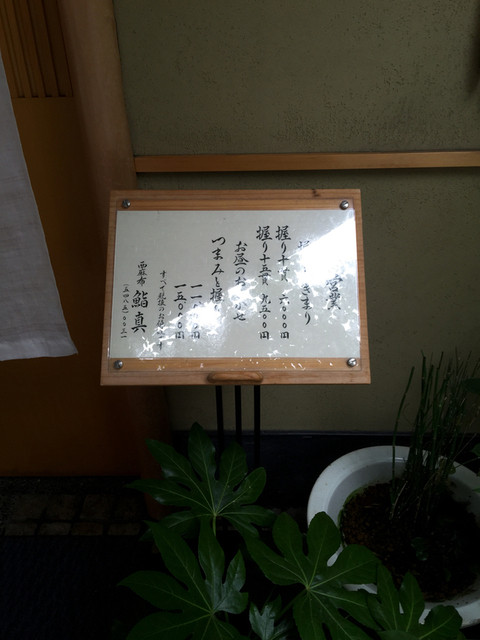 営業
握 きまり
握り十貫 六〇〇〇円
握り十五貫 九五〇〇円
お昼のお せ
つまみと握り
一五〇〇〇円
すべて税抜のお
西麻布 鮨真
(五四八五)〇〇三一